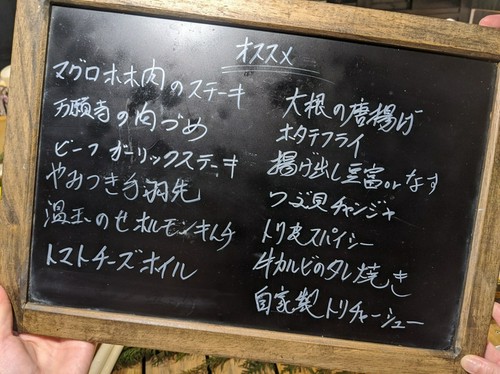 オススメ
マグロホホ肉のステーキ
万願寺の肉づめ
ビーフガーリックステーキ
やみつき手羽先
温玉のせホルモンキムチ
トマトチーズホイル
大根の唐揚げ
ホタテフライ
揚げ出し豆富orなす
つぶ貝チャンジャ
トリ皮スパイシー
牛カルビのタレ焼き
自家製トリチャーシュー